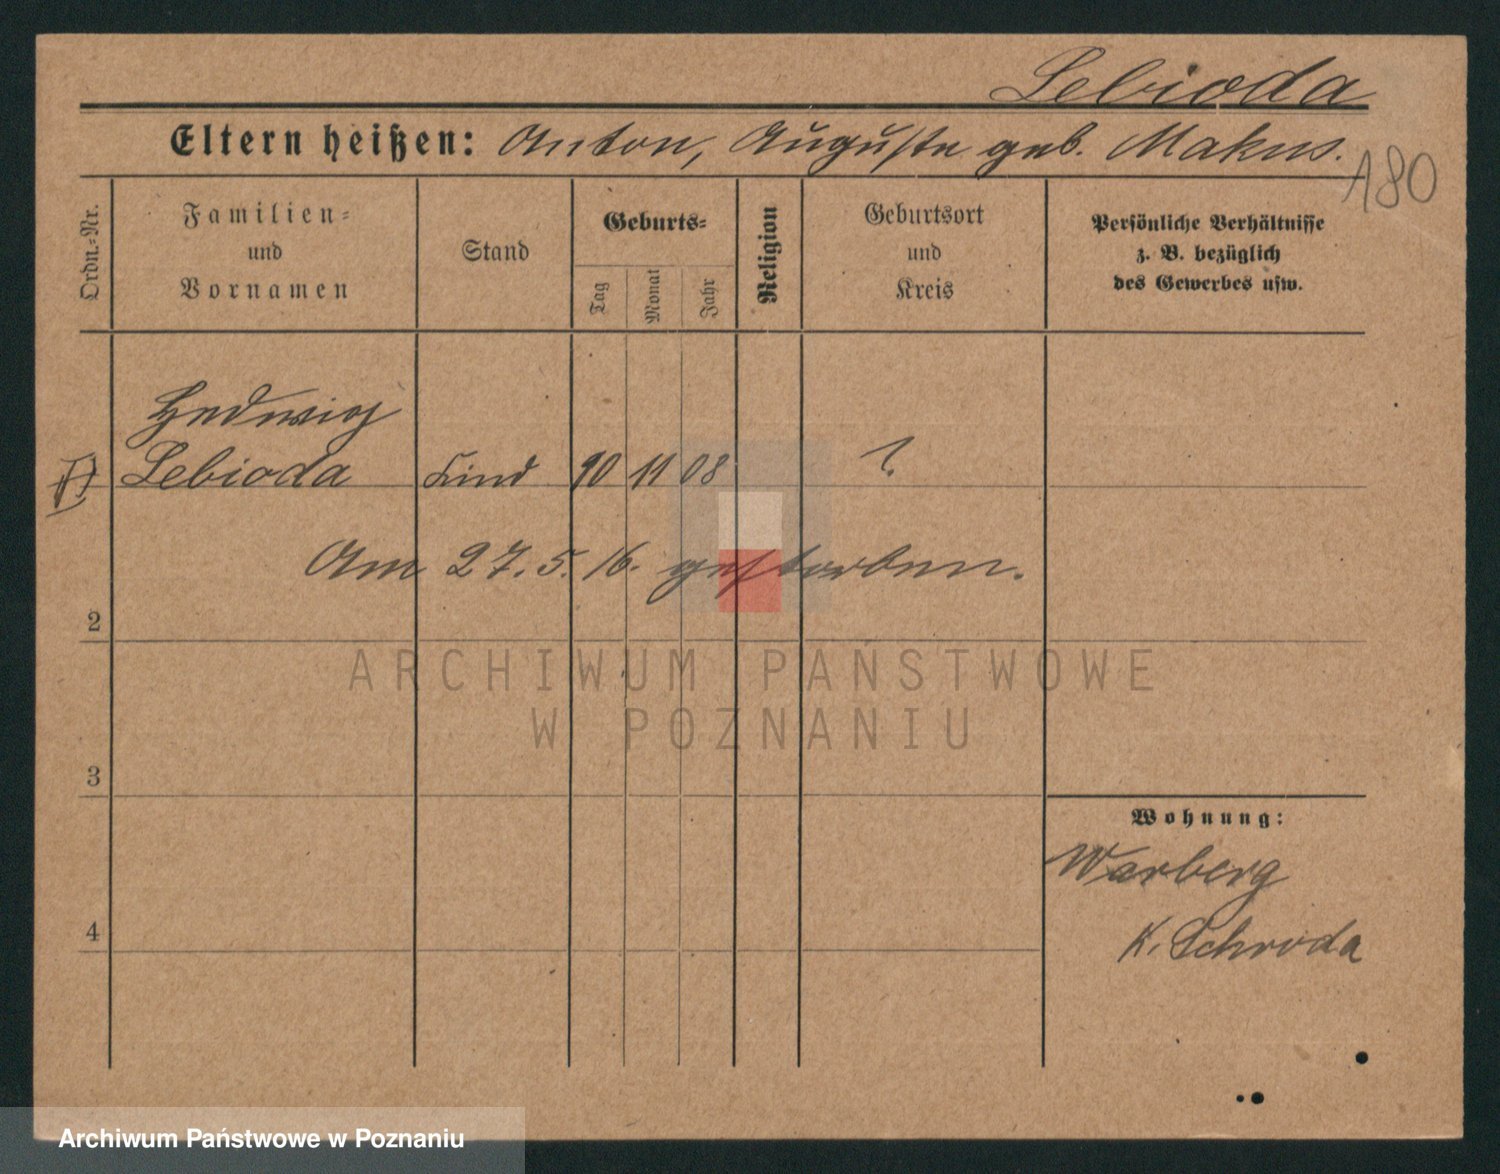 Lebioda
Eltern heißen: Anton, Auguste geb. Makus.
180
Ordn.-Nr.
Familien-
und
Vornamen
Stand
Geburts-
Tag
Monat
Jahr
Religion
Geburtsort
und
Kreis
Persönliche Verhältnisse
z. B. bezüglich
des Gewerbes usw.
Hedwig
Lebioda Kind 10 11 08 ?
Am 27. 5. 16. gestorben.
2
ARCHIWUM PAŃSTWOWE
W POZNANIU
3
Wohnung:
Warberg
4
K. Schroda
Archiwum Państwowe w Poznaniu